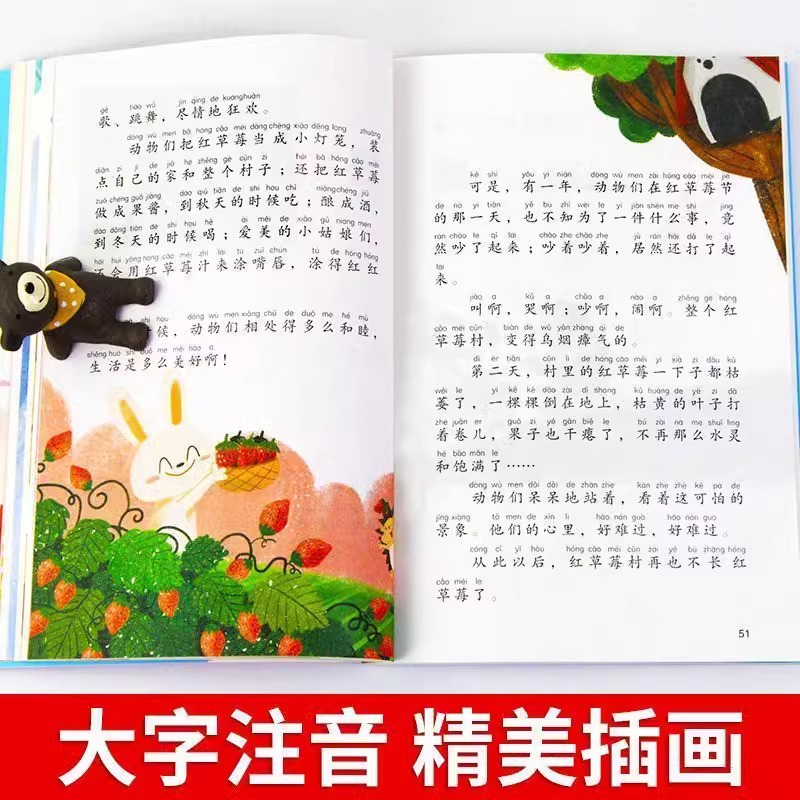 gē tiào wǔ jìn qíng de kuánghuān
歌、跳舞，尽情地狂欢。
dòng wù men bǎ hóng cǎo méi dàng chéng xiǎo dēng long zhuāng
动物们把红草莓当成小灯笼，装
diǎn zì jǐ de jiā hé zhěng gè cūn zi hái bǎ hóng cǎo méi
点自己的家和整个村子；还把红草莓
zuò chéng guǒ jiàng dào qiū tiān de shí hou chī niàng chéng jiǔ
做成果酱，到秋天的时候吃；酿成酒，
dào dōng tiān de shí hou hē ài měi de xiǎo gū niang men
到冬天的时候喝；爱美的小姑娘们，
hái huì yòng hóng cǎo méi zhī lái tú zuǐ chún tú de hóng hóng
还会用红草莓汁来涂嘴唇，涂得红红
hou dòng wù men xiāng chǔ de duō me hé mù
候，动物们相处得多么和睦，
shēng huó shì duō me měi hǎo a
生活是多么美好啊！
kě shì yǒu yì nián dòng wù men zài hóng cǎo méi jié
可是，有一年，动物们在红草莓节
de nà yì tiān yě bù zhī wèi le yí jiàn shén me shì jìng
的那一天，也不知为了一件什么事，竟
rán chǎo le qǐ lái chǎo zhe chǎo zhe jū rán hái dǎ le qǐ
然吵了起来；吵着吵着，居然还打了起
lái
来。
jiào a kū a chǎo a nào a zhěng gè hóng
叫啊，哭啊；吵啊，闹啊。整个红
cǎo méi cūn biàn de wū yān zhàng qì de
草莓村，变得乌烟瘴气的。
dì èr tiān cūn li de hóng cǎo méi yí xià zi dōu kū
第二天，村里的红草莓一下子都枯
wěi le yì kē kē dǎo zài dì shang kū huáng de yè zi dǎ
萎了，一棵棵倒在地上，枯黄的叶子打
zhe juǎn er guǒ zi yě gān biě le bú zài nà me shuǐ líng
着卷儿，果子也干瘪了，不再那么水灵
hé bǎo mǎn le
和饱满了……
dòng wù men dāi dāi de zhàn zhe kàn zhe zhè kě pà de
动物们呆呆地站着，看着这可怕的
jǐng xiàng tā men de xīn li hǎo nán guò hǎo nán guò
景象。他们的心里，好难过，好难过。
cóng cǐ yǐ hòu hóng cǎo méi cūn zài yě bù zhǎng hóng
从此以后，红草莓村再也不长红
cǎo méi le
草莓了。
51
大字注音 精美插画